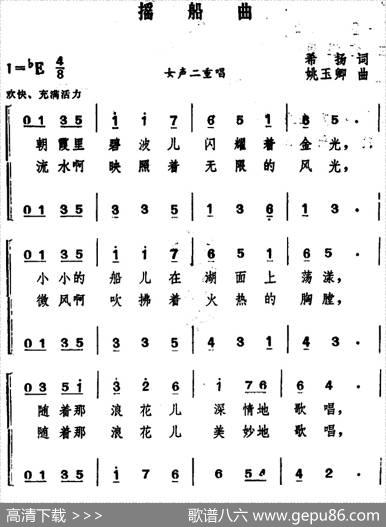 摇船曲
1=♭E 4/8
女声二重唱
希扬 词
姚玉卿 曲
欢快、充满活力
0 1 3 5 | i i 7 | 6 5 7 | 6 5 .
朝霞里 碧波儿 闪耀着 金光，
流水啊 映照着 无限的 风光，
0 1 3 5 | 3 3 5 | 1 3 6 | 1 3 .
0 1 3 5 | i i 7 | 6 5 1 | 6 5 .
小小的 船儿在 湖面上 荡漾，
微风啊 吹拂着 火热的 胸膛，
0 1 3 5 | 3 3 5 | 4 3 1 | 4 3 .
0 3 5 i | 3 2 6 | i 7 6 | 6 4 .
随着那 浪花儿 深情地 歌唱，
随着那 浪花儿 美妙地 歌唱，
0 1 3 5 | i 7 6 | 6 5 4 | 4 2 .
高清下载 >>> 歌谱八六 www.gepu86.com